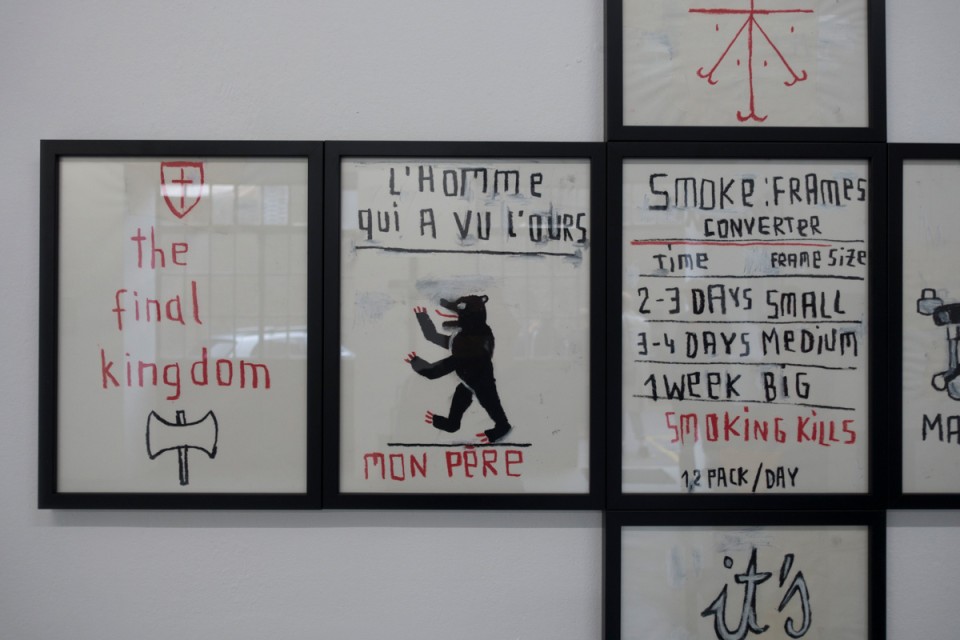 the
final
kingdom
L'HOMME
qui A VU L'OURS
MON PÈRE
SMOKE:FRAMES
CONVERTER
TIME FRAME SIZE
2-3 DAYS SMALL
3-4 DAYS MEDIUM
1 WEEK BIG
SMOKING KILLS
1,2 PACK/DAY
MA
it's